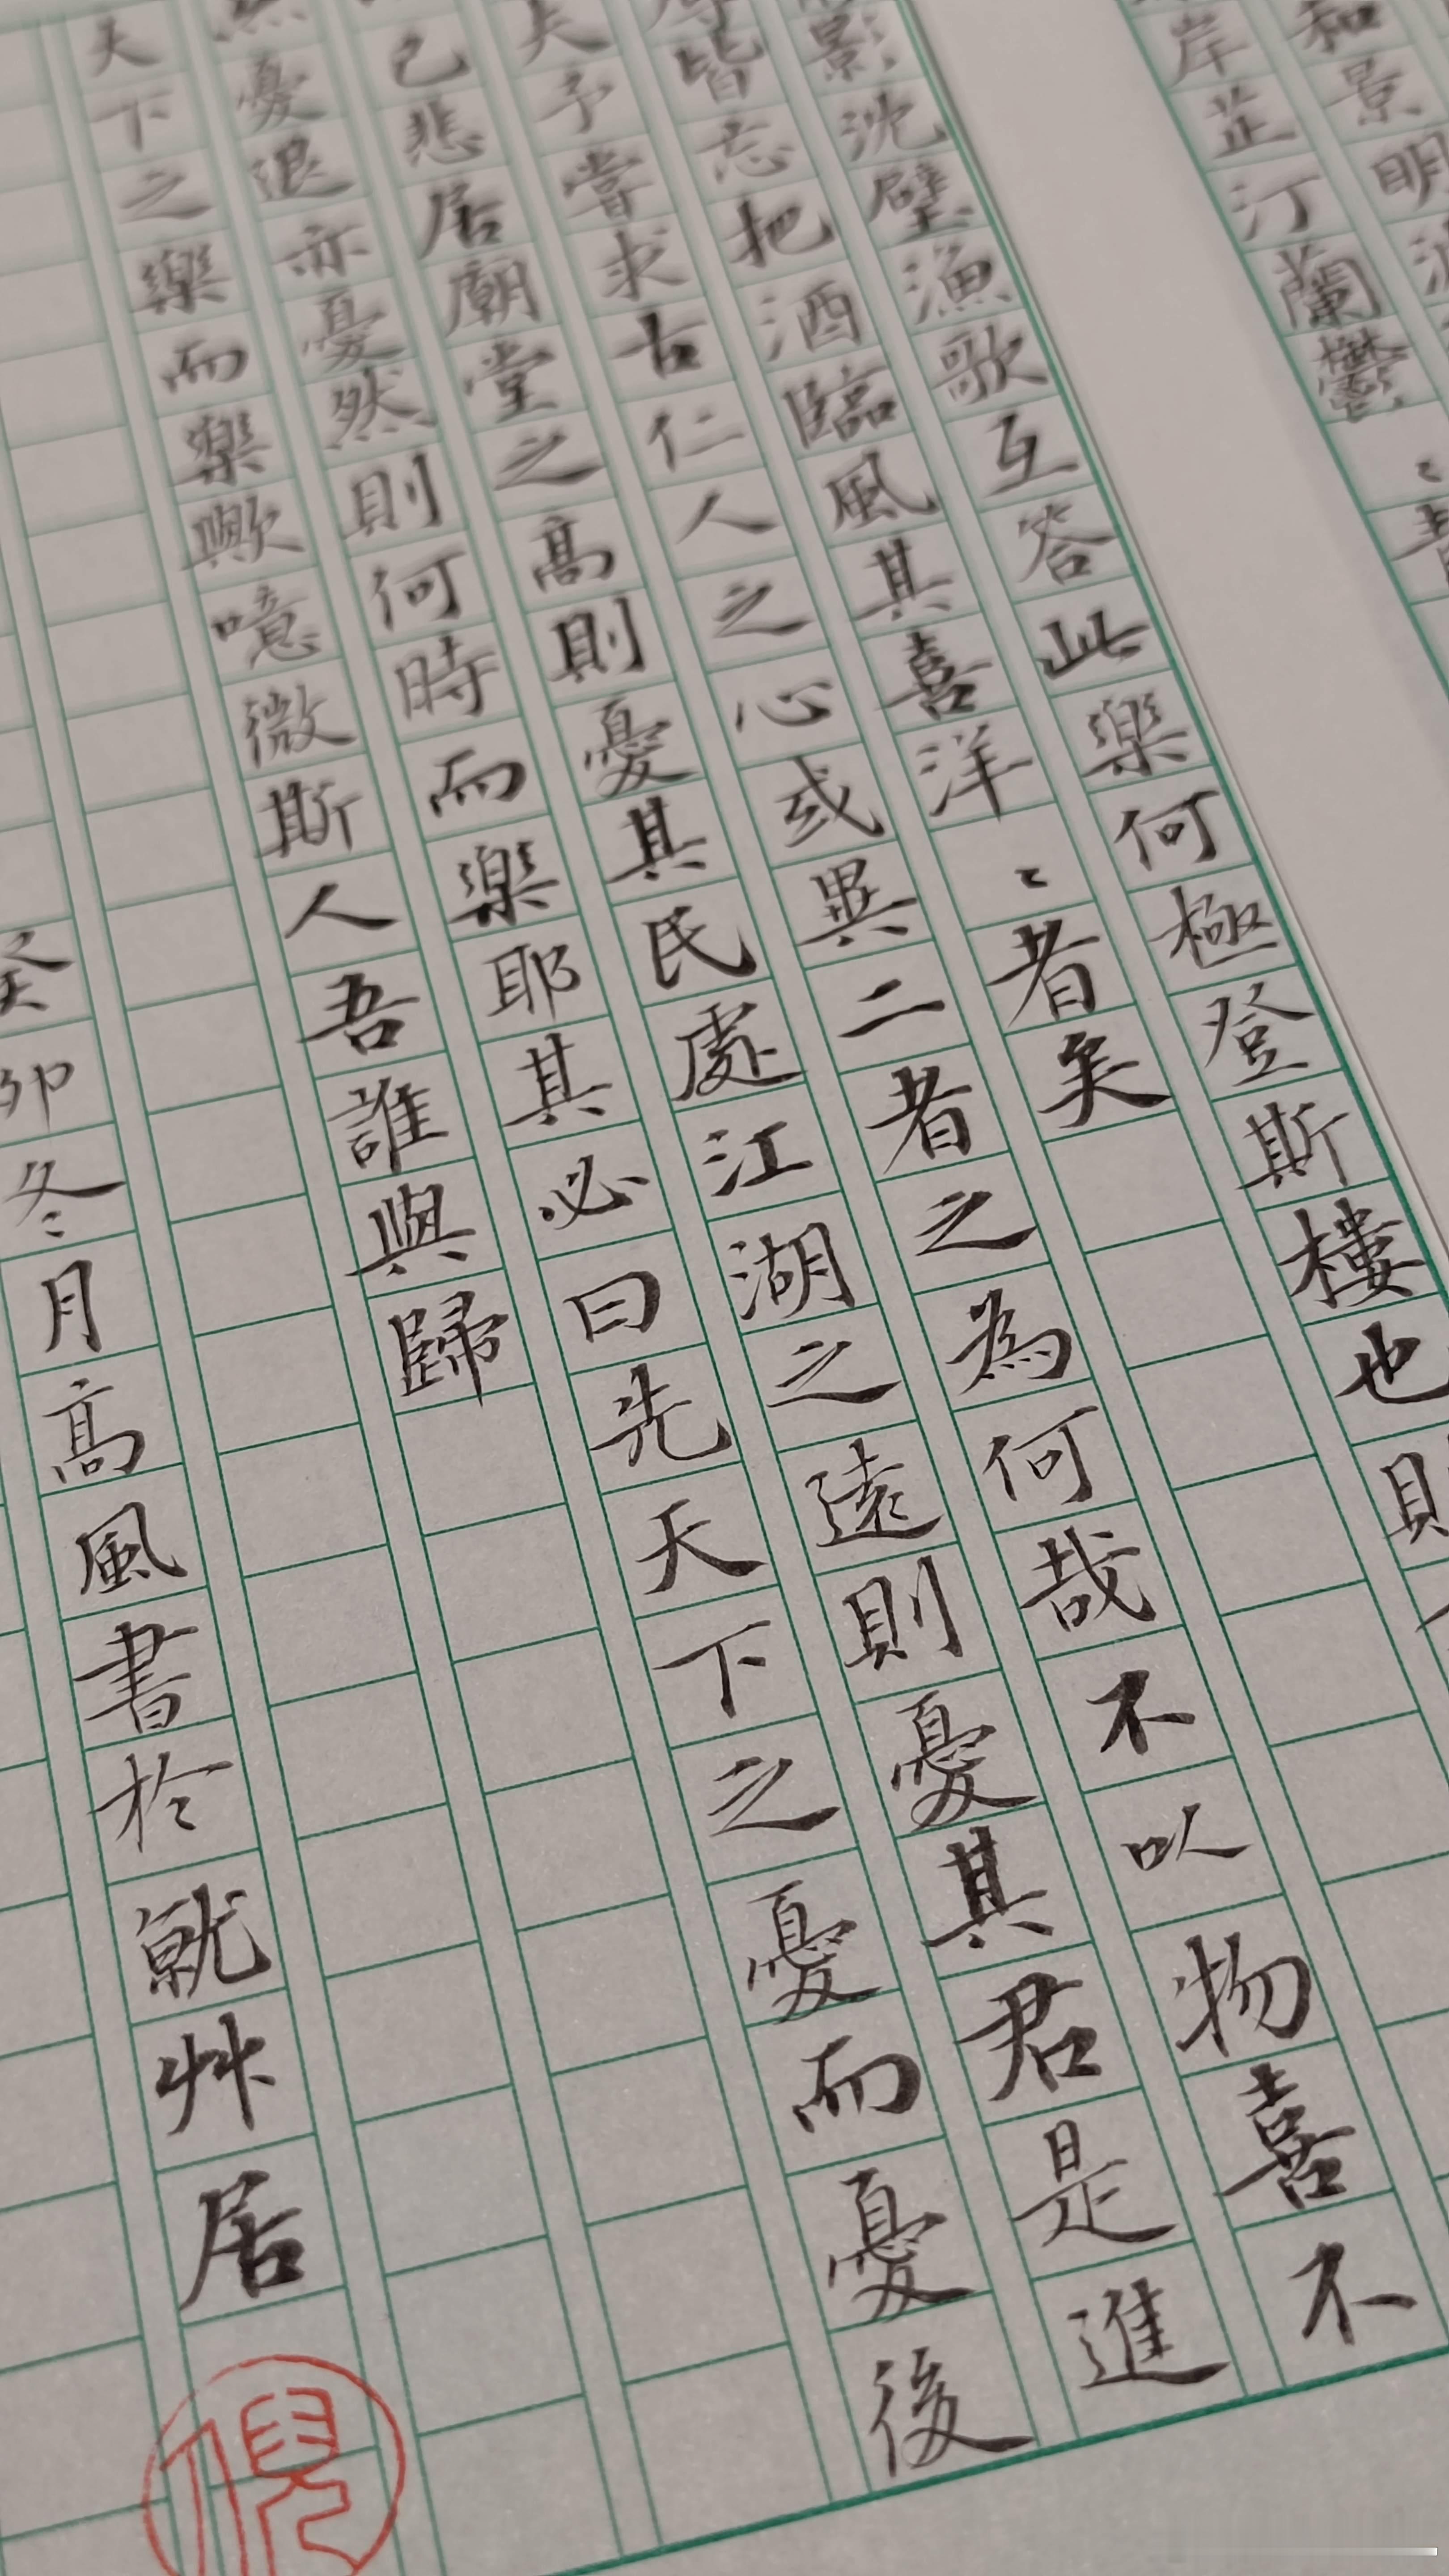 和景明
岸芷汀蘭鬱〻青
影沈璧漁歌互答此樂何極登斯樓也則
皆忘把酒臨風其喜洋〻者矣
夫予嘗求古仁人之心或異二者之為何哉不以物喜不
己悲居廟堂之高則憂其民處江湖之遠則憂其君是進
憂退亦憂然則何時而樂耶其必曰先天下之憂而憂後
天下之樂而樂歟噫微斯人吾誰與歸
癸卯冬月高風書於就艸居
倪